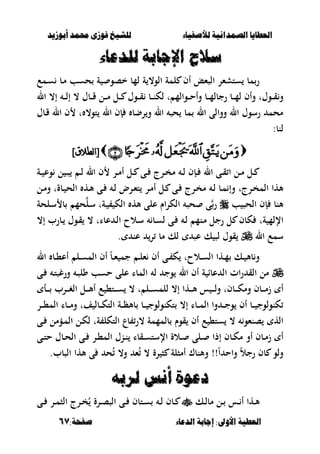 العطايا الصمدانية للأصفياء للشيخ فوزى محمد أبوزيد
سلاح الإجابة للدعاء
ربما يستشعر البعض أن كلمة الولاية لها خصوصية بحسب ما نسمع
ونقـول، وأن لهـا رجالهـا وأحـوالهم، لكننـا نقـول كـل مـن قـال لا إلـه إلا الله
محمد رسول الله ووالى الله بما يحبه الله ويرضاه فإن الله يتولاه، لأن الله قـال
لنا:
وَمَن يَتَّقِ ٱللَّهَ يَجْعَل لَّهُۥ مَخْرَجًا ﴿٢﴾ [الطلاق]
كـل مـن اتقـى الله فإن لـه مخـرج فـى كـل أمـر لأن الله لـم يبـين نوعيـة
هذا المخرج، وإنمـا لـه مخـرج فـى كـل أمـر يتعـرض لـه فـى هـذه الحيـاة، ومـن
هنا فإن الحبيب ﷺ ربَّى صحبه الكرام على هذه الكيفية، سلَّحهم بالأسلحة
الإلهية، فكان كل رجل منهم لـه فـى لسـانه سـلاح الـدعاء، لا يقـول يـارب إلا
سمع الله ﷻ يقول لبيك عبدى لك ما تريد عندى.
وناهيـك بهـذا السـلاح، يكفـى أن نعلـم جميعـاً أن المسـلم أعطـاه الله
ﷻ من القدرات الدعائية أن الله يوجد له الماء على حسب طلبه ورغبته فى
أى زمـان ومكـان، ولـيس هـذا إلا للمسـلم، لا يسـتطيع أهـل الغـرب بـأى
تكنولوجيـا أن يوجـدوا المـاء إلا بتكنولوجيـا باهظـة التكـاليف، ومـاء المطـر
الذى يصنعونه لا يستطيع أن يقوم بالمهمة لارتفاع التكلفة، لكن المؤمن فى
أى زمـان أو مكـان إذا صلى صـلاة الإستسـقاء ينـزل المطـر فـى الحـال حتـى
ولو كان رجلاً واحداً!! وهناك أمثلة كثيرة لا تُعد ولا تُحد فى هذا الباب.
دعوة أنس لربه
هـذا أنـس بـن مالـك ﷺ كـان لـه بسـتان فـى البصـرة يُخـرج الثمـر فـى
العطية الأولى: إجابة الدعاء صفحة:٦٧